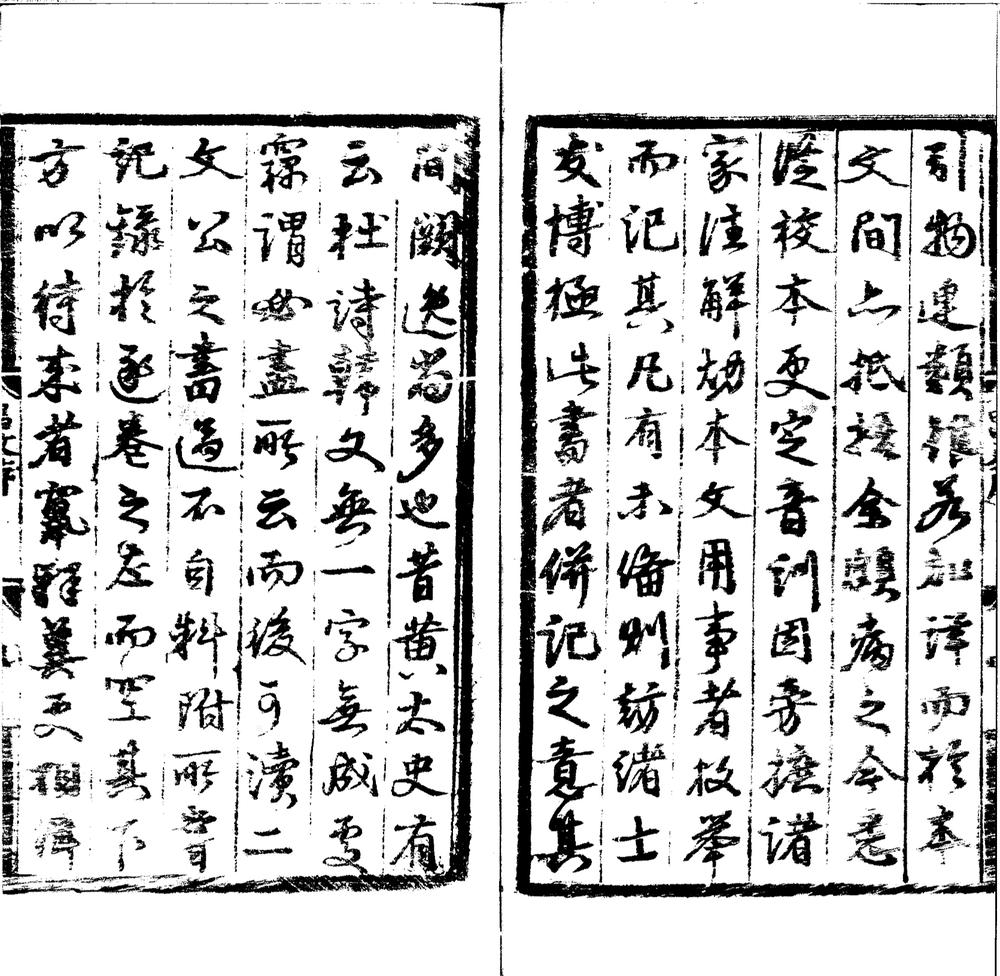 引物連類雖若加詳而於本
文間亦抵捂余頗病之今悉
從校本更定音訓因旁摭諸
家注解本文用事者枚舉
而記其凡有未備則訪諸士
友博極此書者併記之意其
間闕逸尚多也昔黃太史有
云杜詩韓文無一字無成處
霖謂必盡所云而後可讀二
文公之書過不自料附所音
記錄於逐卷之左而空其下
方以待來者竄釋冀更相